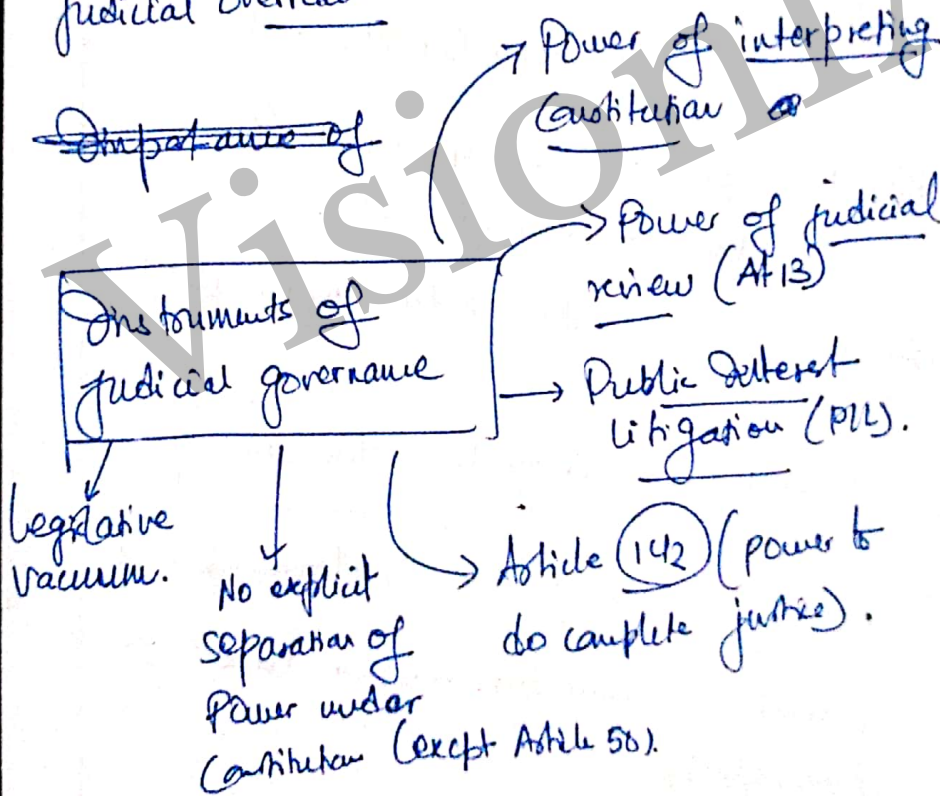 Judicial
Power of interpreting
Constitution
Importance of
Power of judicial
review (Art 13)
Instruments of
judicial governance
Public Interest
litigation (PIL).
Legislative
vacuum.
No explicit
separation of
Power under
Constitution (except Article 50).
Article 142 (power to
do complete justice).
Vision